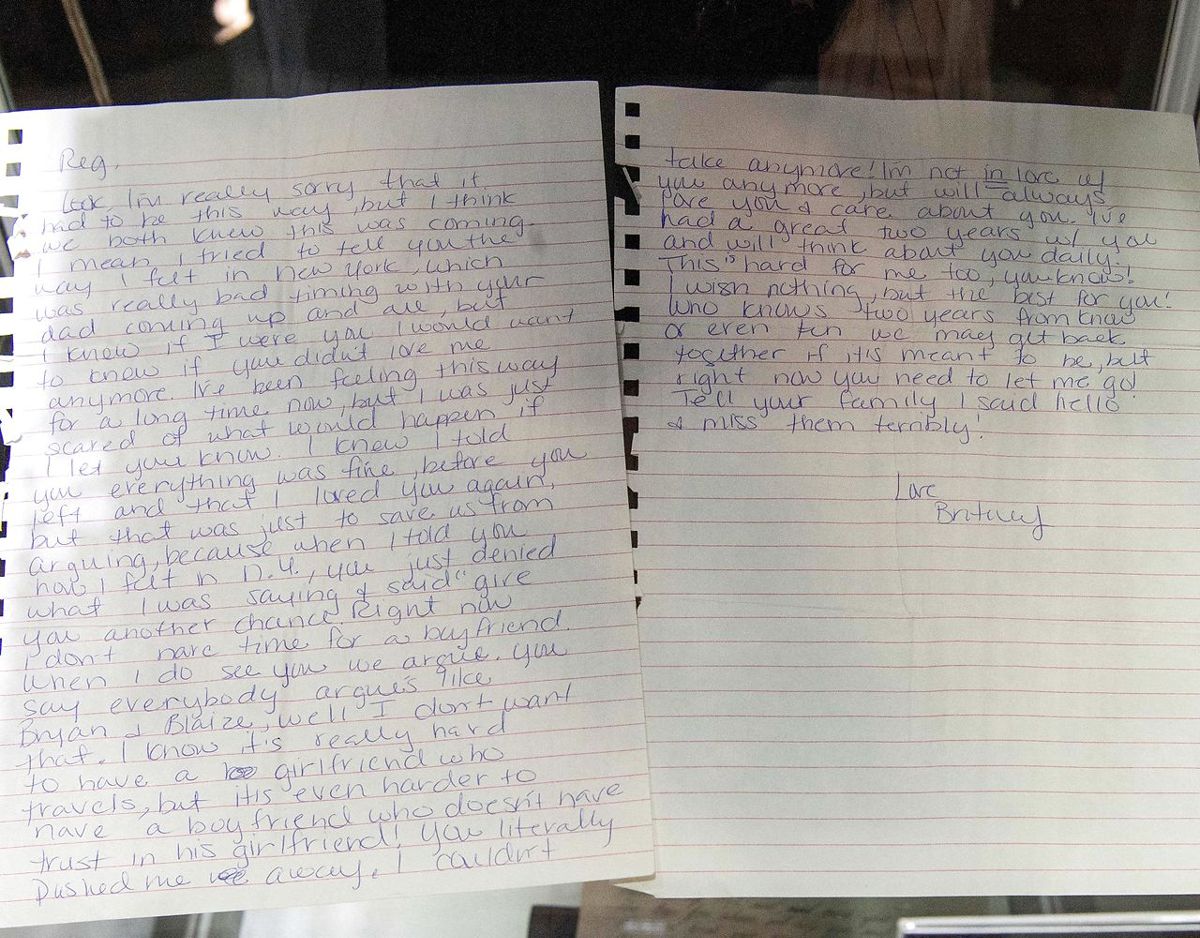 Reg,
Look, I'm really sorry that it
had to be this way, but I think
we both knew this was coming.
I mean I tried to tell you the
way I felt in New York, which
was really bad timing with your
dad coming up and all, but
I know if I were you I would want
to know if you didn't love me
anymore. I've been feeling this way
for a long time now, but I was just
scared of what would happen if
I let you know. I know I told
you everything was fine, before you
left and that I loved you again,
but that was just to save us from
arguing, because when I told you
how I felt in N.Y., you just denied
what I was saying & said "give
you another chance. Right now
I don't have time for a boyfriend.
When I do see you we argue. You
say everybody argue's like
Bryan & Blaize, well I don't want
that. I know it's really hard
to have a girlfriend who
travels, but it's even harder to
have a boyfriend who doesn't have
trust in his girlfriend! You literally
pushed me away. I couldn't
take anymore! I'm not in love w/
you anymore, but will always
love you & care about you. I've
had a great two years w/ you
and will think about you daily!
This is hard for me too, you know!
I wish nothing, but the best for you!
Who knows two years from know
or even ten we may get back
together if it's meant to be, but
right now you need to let me go!
Tell your family I said hello
& miss them terribly!
Love
Britney